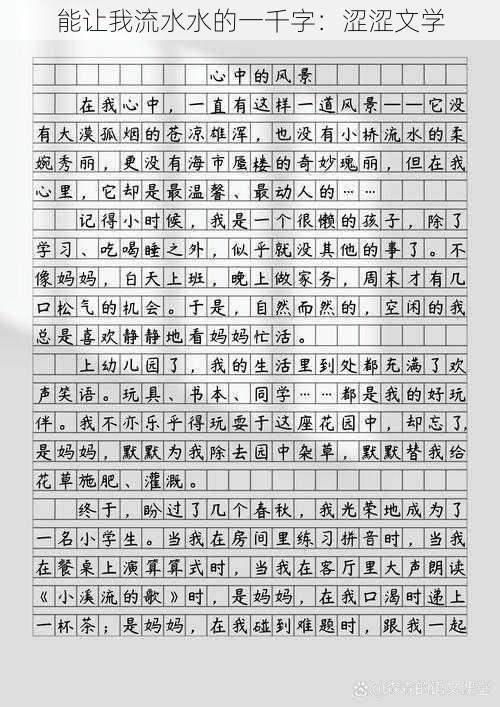 能让我流水水的一千字：涩涩文学
心中的风景
在我心中，一直有这样一道风景——它没
有大漠孤烟的苍凉雄浑，也没有小桥流水的柔
婉秀丽，更没有海市蜃楼的奇妙瑰丽，但在我
心里，它却是最温馨、最动人的……
记得小时候，我是一个很懒的孩子，除了
学习、吃喝睡之外，似乎就没其他的事了。不
像妈妈，白天上班，晚上做家务，周末才有几
口松气的机会。于是，自然而然的，空闲的我
总是喜欢静静地看妈妈忙活。
上幼儿园了，我的生活里到处都充满了欢
声笑语。玩具、书本、同学……都是我的好玩
伴。我不亦乐乎得玩耍于这座花园中，却忘了，
是妈妈，默默为我除去园中杂草，默默替我给
花草施肥、灌溉。
终于，盼过了几个春秋，我光荣地成为了
一名小学生。当我在房间里练习拼音时，当我
在餐桌上演算算式时，当我在客厅里大声朗读
《小溪流的歌》时，是妈妈，在我口渴时递上
一杯茶；是妈妈，在我碰到难题时，跟我一起